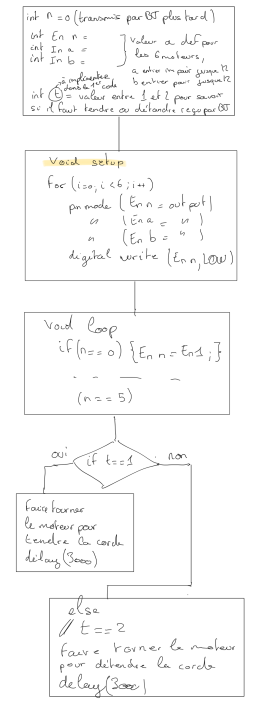 int n = 0 (transmis par BT plus tard)
int En n =
int In a =
int In b =
valeur a def pour
les 6 moteurs,
a entier impair jusque 12
b entier pair jusque 12
déjà implémentée
dans le 1er code
int (t) = valeur entre 1 et 2 pour savoir
si il faut tendre ou détendre reçu par BT
Void setup
for (i=0, i<6; i++)
pin mode (En n = output)
" (In a = ")
" (In b = ")
digital write (En n, LOW)
Void loop
if (n==0) {En n = En1;}
- - - -
(n == 5)
if t==1
oui
non
faire tourner
le moteur pour
tendre la corde
délay(3000)
else
// t == 2
faire torner le moteur
pour détendre la corde
delay(3000)